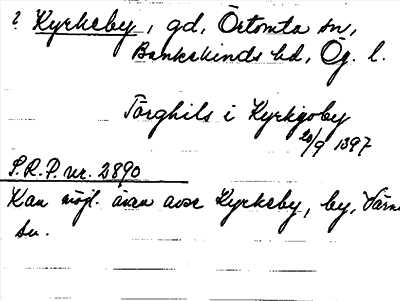 ? Kyrkeby, gd, Örtomta sn,
Bankekinds hd, Ög. l.
Torghils i Kyrkgoby
20/9 1397
S.R.P. nr. 2890
Kan möjl. även avse Kyrkeby, by, Värn
sn.